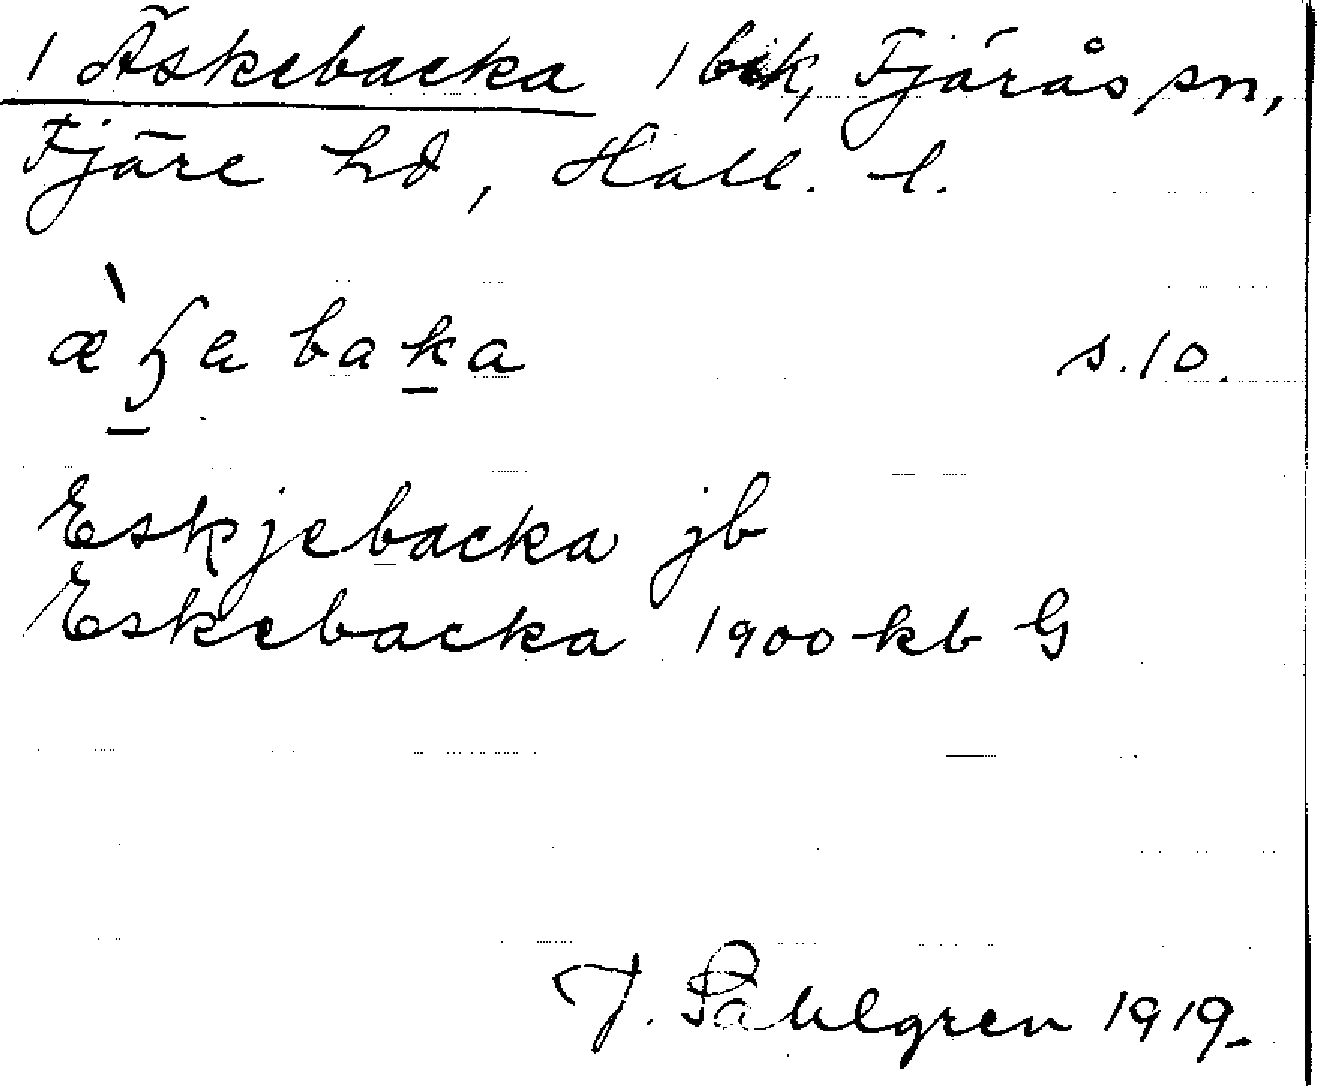 1 Äskebacka 1 bek, Fjärås sn,
Fjäre hd, Hall. l.
æ̀ɧe baka s. 10.
Eskjebacka jb
Eskebacka 1900 kb G
J. Sahlgren 1919